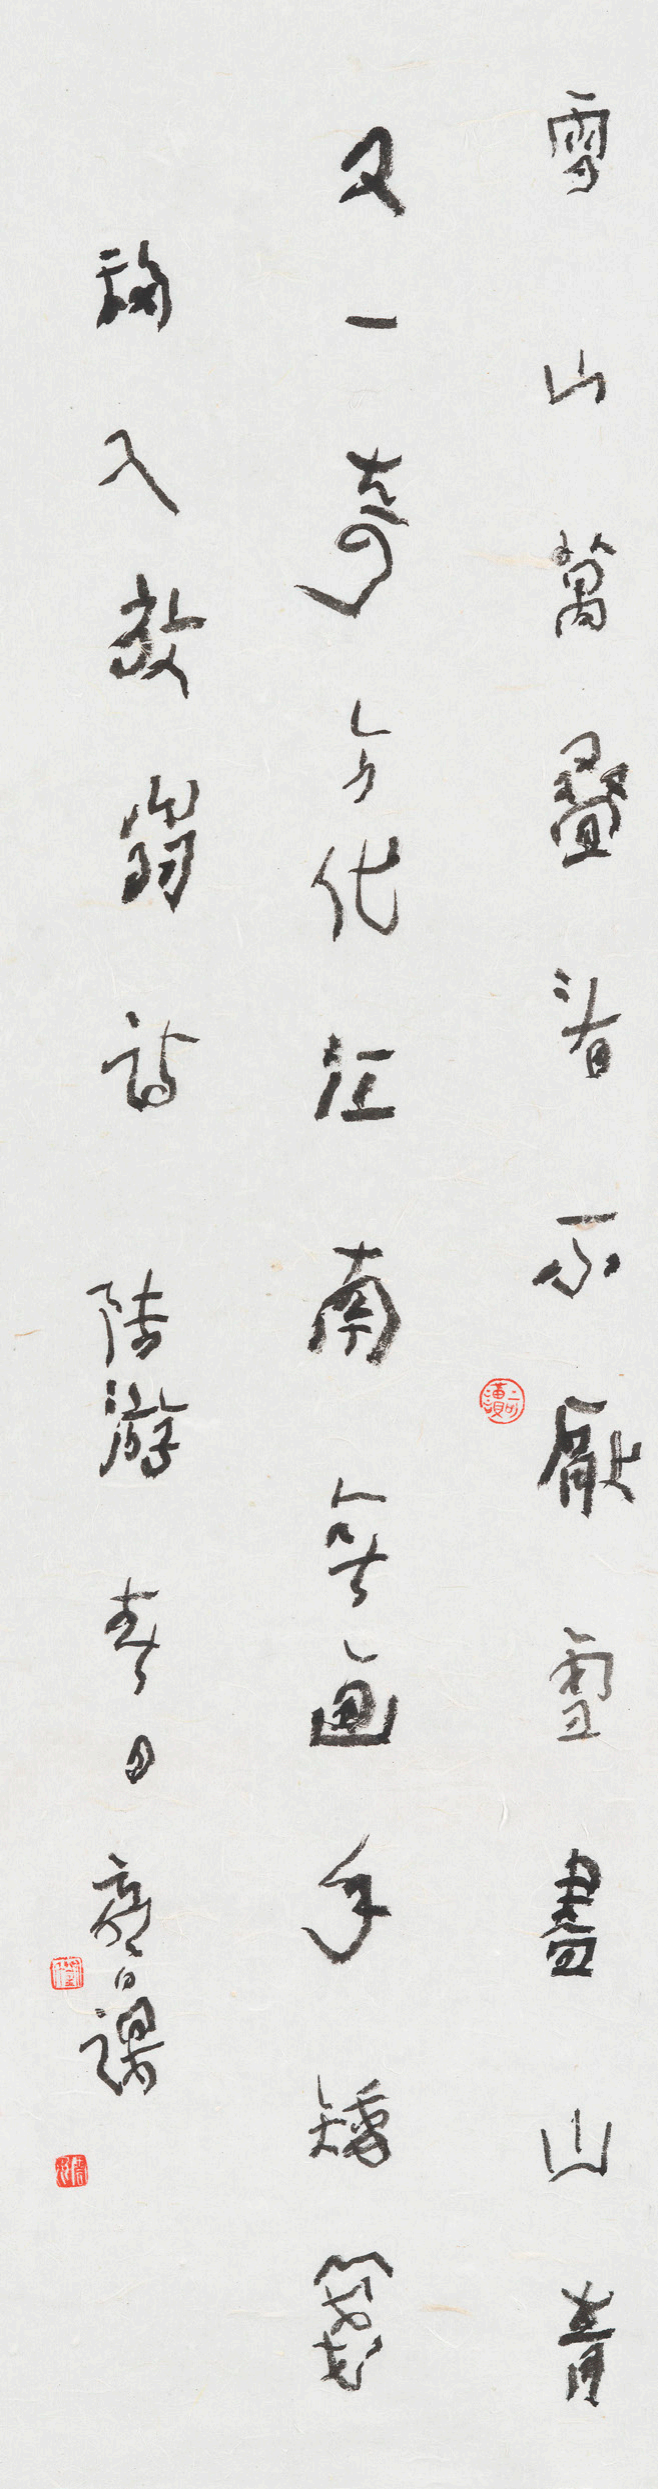 雪山萬疊看不厭雪盡山青
又一奇今代江南無畫手矮箋
移入放翁詩 陸游 春日